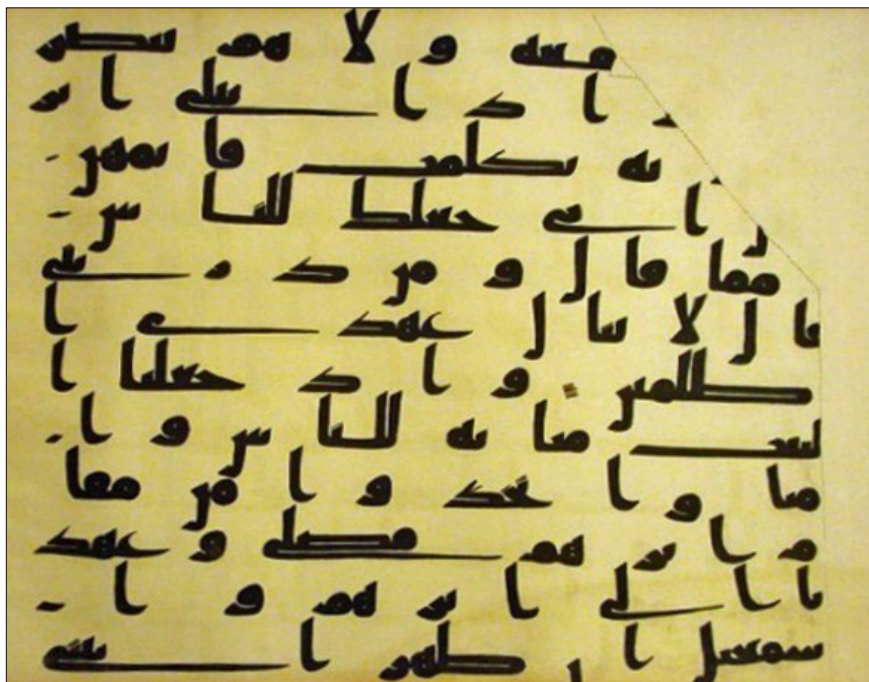 شفعة ولا هم ينصر
ون واذ ابتلى ابر
ربه بكلمت فاتمهن
انى جاعلك للناس
اماما قال ومن ذريتى
قال لا ينال عهدى ا
لظلمين واذ جعلنا ا
لبيت مثابة للناس وا
منا واتخذوا من مقا
م ابرهم مصلى وعهد
نا الى ابرهم وا
سمعيل ان طهرا بيتى